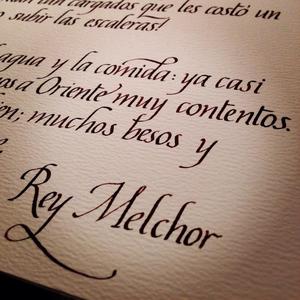 tan cargados que les costó un
subir las escaleras!
agua y la comida: ya casi
a Oriente muy contentos.
muchos besos y
Rey Melchor